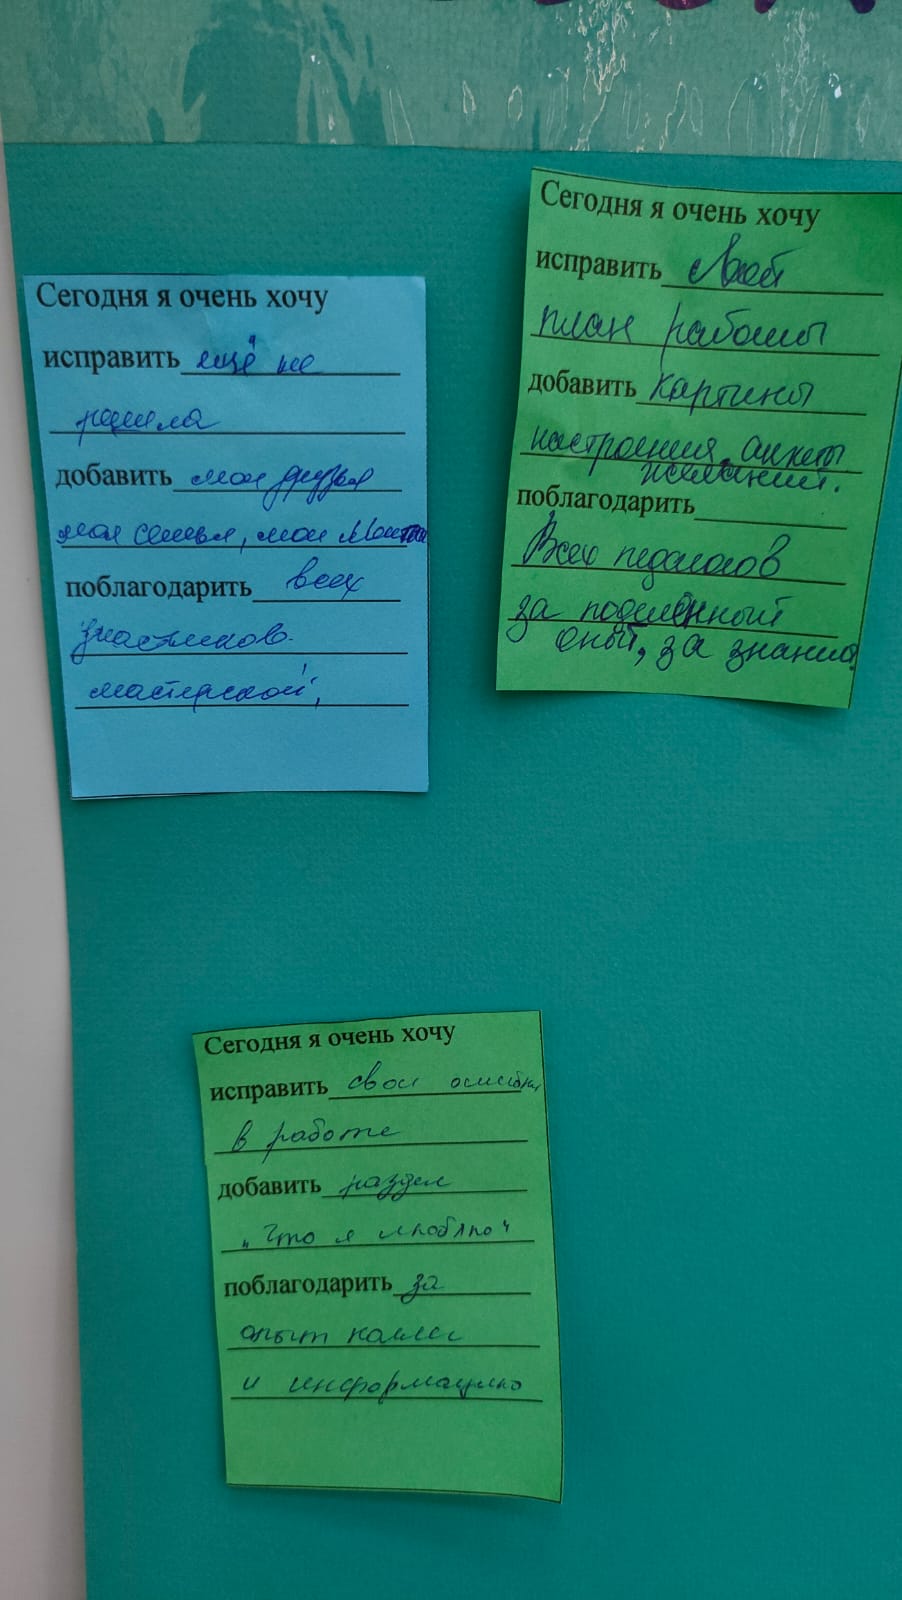 Сегодня я очень хочу
исправить ещё не
решила
добавить мои друзья
моя семья, мои мечты
поблагодарить всех
участников
мастерской,
Сегодня я очень хочу
исправить свой
план работы
добавить картины
настроения, анкеты
желаний.
поблагодарить
Всех педагогов
за поделённый
опыт, за знания
Сегодня я очень хочу
исправить свои ошибки
в работе
добавить раздел
"Что я люблю"
поблагодарить за
опыт коллег
и информацию